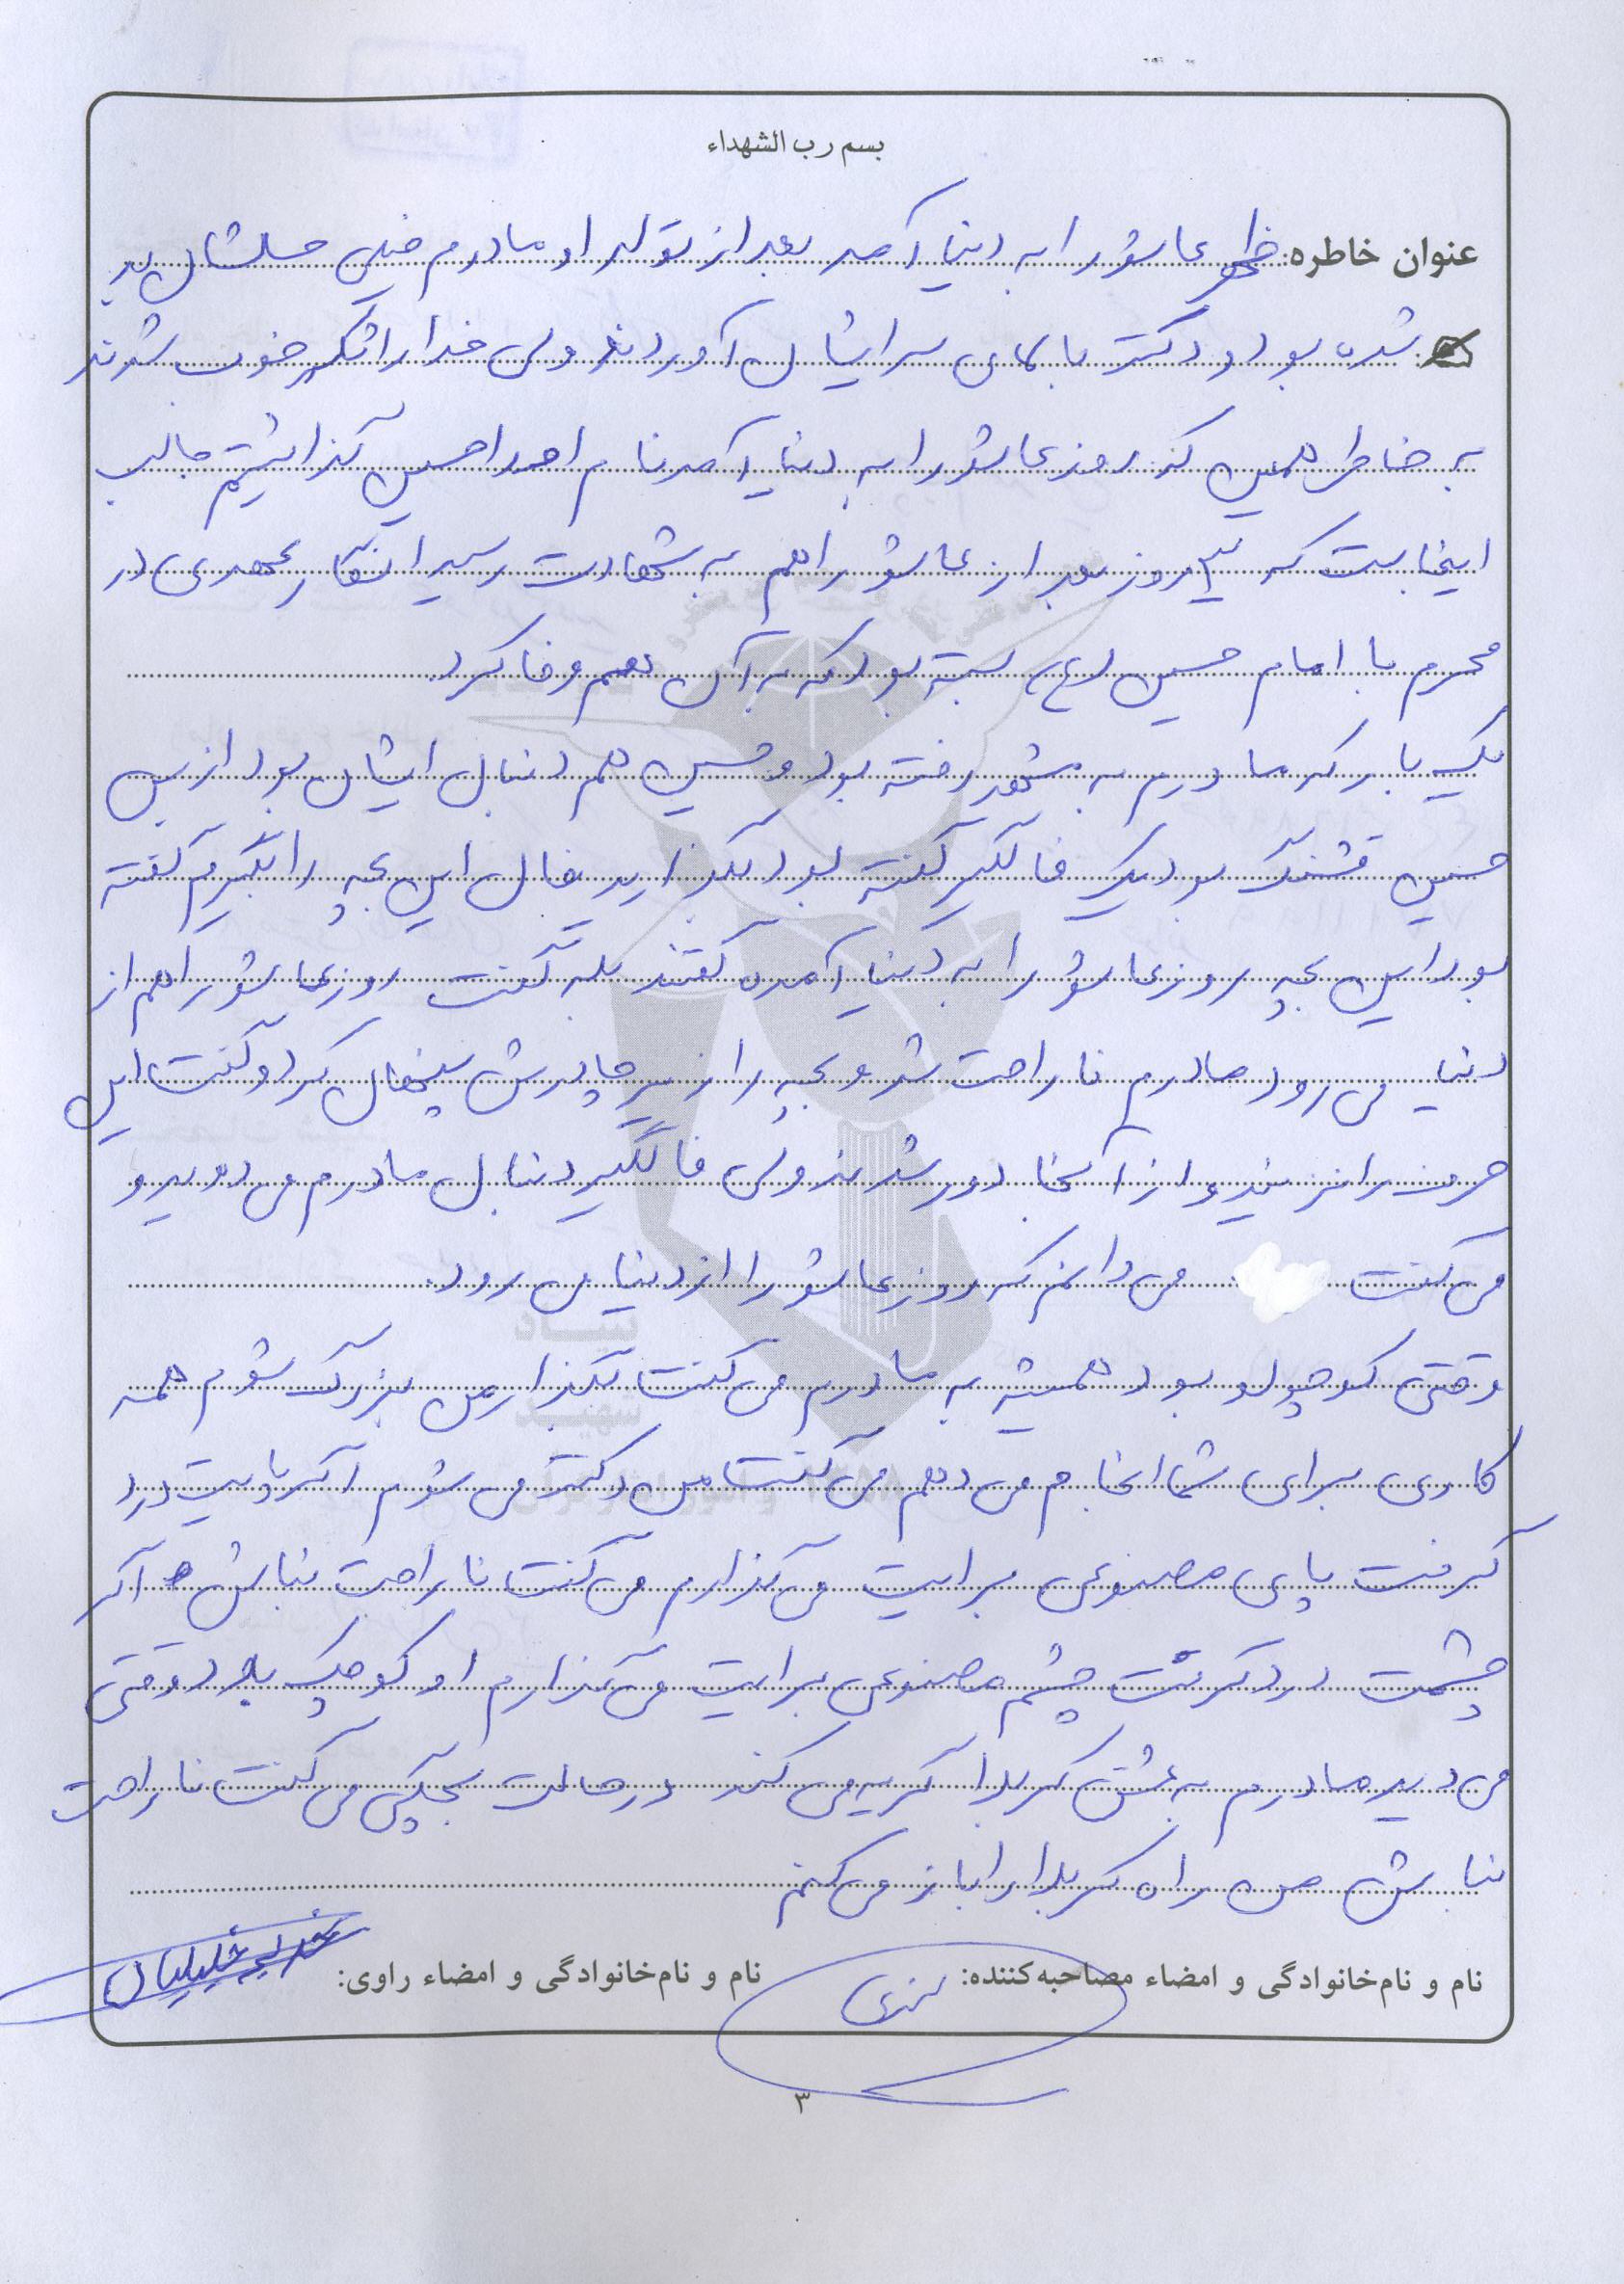 بسم رب الشهداء
عنوان خاطره: ظهر عاشورا به دنیا آمد بعد از تولد او مادرم خیلی حالشان بد
شده بود و دکتر بالای سر ایشان آوردند ولی خدا را شکر خوب شدند
به خاطر همین که روز عاشورا به دنیا آمد نام او را حسین گذاشتیم جالب
اینجاست که ۳ روز بعد از عاشورا هم به شهادت رسید انگار عهدی در
محرم با امام حسین (ع) بسته بود که به آن هم وفا کرد.
یک بار که مادرم به مشهد رفته بود و حسین هم دنبال ایشان بود از بس
حسین قشنگ بود یک فالگیر گفته بود بگذارید فال این بچه را بگیرم گفته
بود این بچه روز عاشورا به دنیا آمده گفتند بله گفت روز عاشورا هم از
دنیا می رود مادرم ناراحت شد و بچه را زیر چادرش پنهان کرد و گفت این
حرف را نزنید و از آنجا دور شدند ولی فالگیر دنبال مادرم می دوید و
می گفت می دانم که روز عاشورا از دنیا می رود.
وقتی کوچولو بود همیشه به مادرم می گفت بگذار من بزرگ شوم همه
کاری برای شما انجام می دهم می گفت من دکتر می شوم اگر پایت درد
گرفت پای مصنوعی برایت می گذارم می گفت ناراحت نباش اگر
چشمت درد گرفت چشم مصنوعی برایت می گذارم او کوچک بود وقتی
می دید مادرم به عشق کربلا گریه می کند در حالت بچگی می گفت ناراحت
نباش من راه کربلا را باز می کنم
نام و نام‌خانوادگی و امضاء مصاحبه‌کننده: نام و نام‌خانوادگی و امضاء راوی: خدیجه خلیلیان
۳